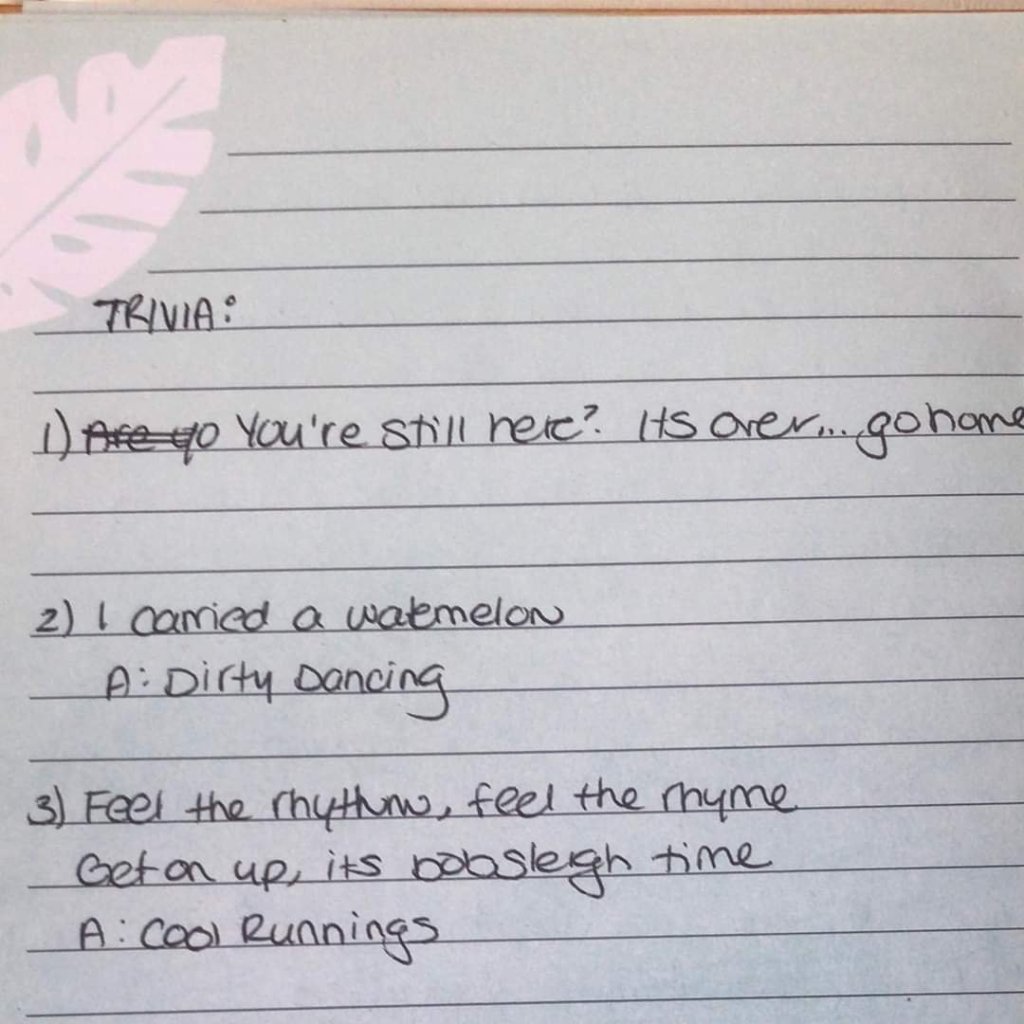 TRIVIA:
1) Are yo You're still here? Its over... go home
2) I carried a watermelon
A: Dirty Dancing
3) Feel the rhythm, feel the rhyme
Get on up, its bobsleigh time
A: Cool Runnings